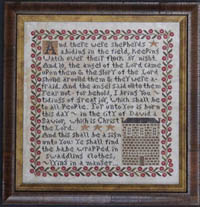 And there were shepherds
abiding in the field, keeping
watch over their flock by night.
And lo, the angel of the Lord came
upon them & the glory of the Lord
shone around them & they were a-
fraid. And the angel said unto them
Fear not - for behold, I bring you
tidings of great joy, which shall be
to all people. For unto you is born
this day in the city of David a
Savior, which is Christ
the Lord.
And this shall be a sign
unto you Ye shall find
the babe wrapped in
swaddling clothes,
lying in a manger